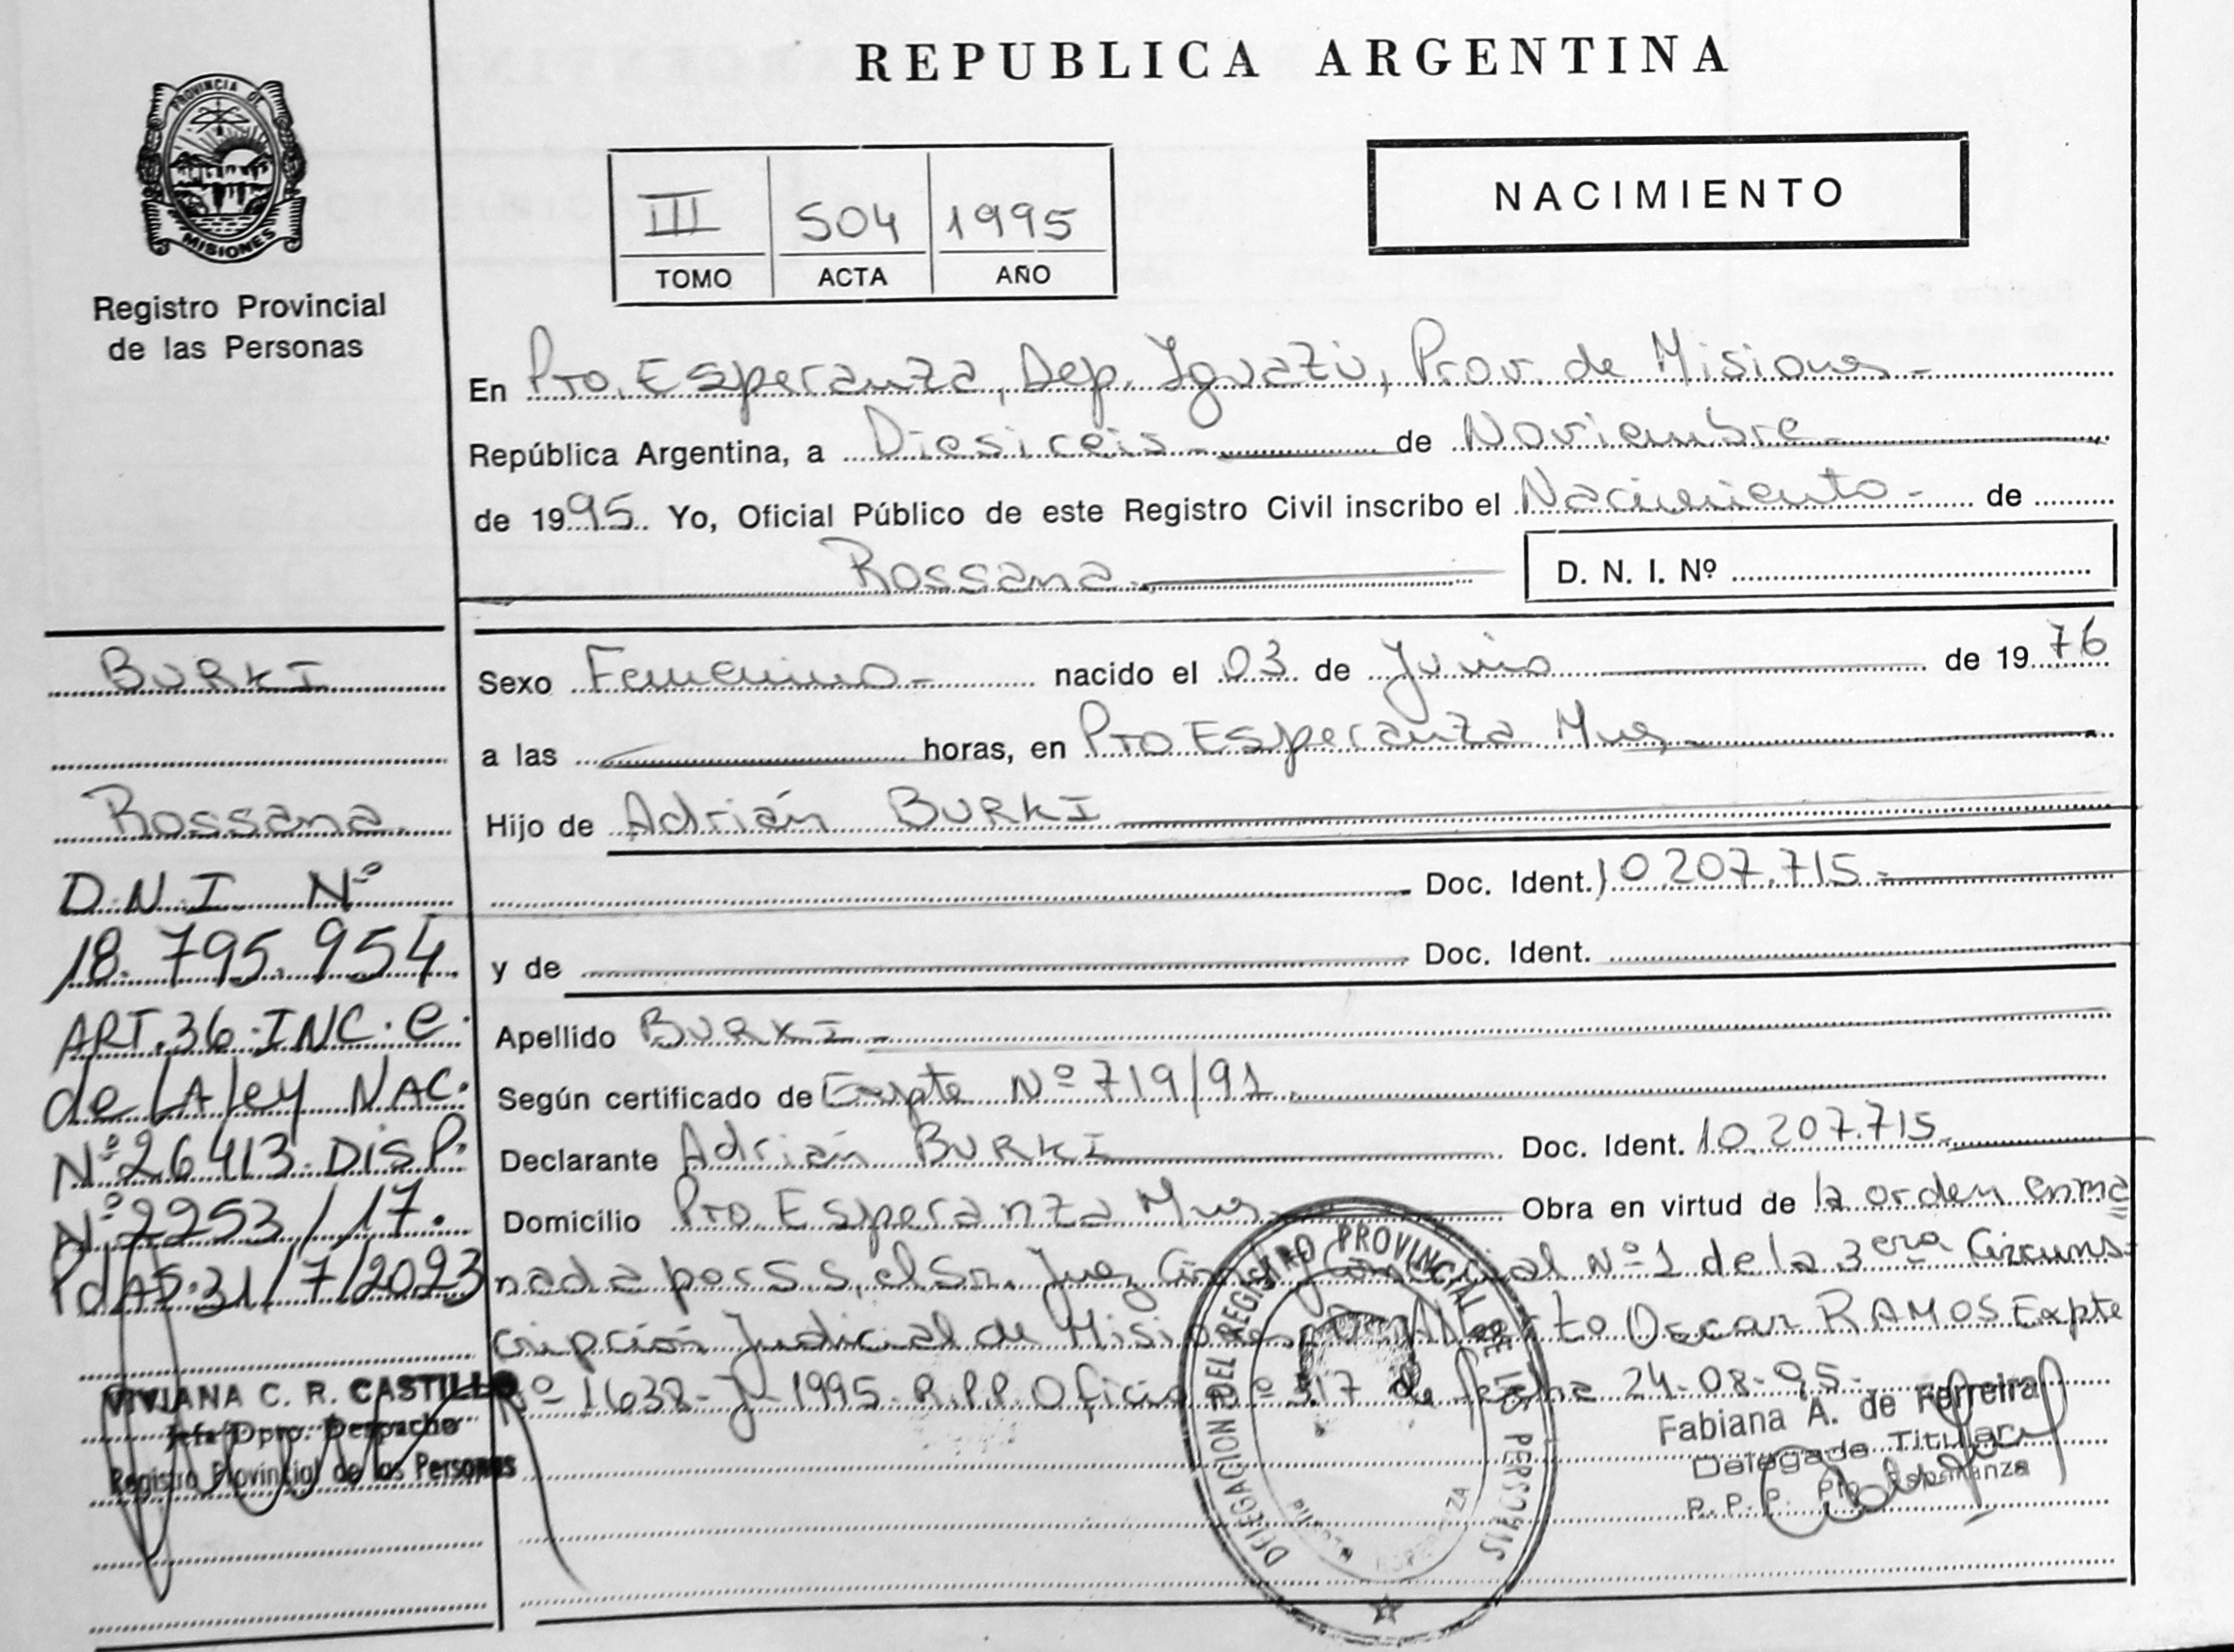 PROVINCIA DE
MISIONES
Registro Provincial
de las Personas
REPUBLICA ARGENTINA
NACIMIENTO
III 504 1995
TOMO ACTA AÑO
En Pto. Esperanza, Dep. Iguazú, Prov. de Misiones -
República Argentina, a Diesiceis - de Noviembre -
de 1995. Yo, Oficial Público de este Registro Civil inscribo el Nacimiento - de
Rossana - D. N. I. Nº
Sexo Femenino - nacido el 03 de Junio de 1976
a las horas, en Pto Esperanza Mnes -
Hijo de Adrián BURKI
Doc. Ident. 10.207.715 -
y de Doc. Ident.
Apellido BURKI -
Según certificado de Expte Nº 719/91.
Declarante Adrián BURKI Doc. Ident. 10.207.715
Domicilio Pto Esperanza Mnes Obra en virtud de la orden enma
nada por S.S. el Sr. Juez Nº 1 de la 3era Circuns-
cripción Judicial de Misiones Alberto Oscar RAMOS Expte
Nº 1638-J-1995-R.P.P. Oficio nº 517 de fecha 24-08-95-
BURKI
Rossana
D.N.I. Nº
18.795.954
ART.36.INC.e.
de LA ley NAC.
Nº26413.DISP.
Nº2253/17.
PdAS.31/7/2023
VIVIANA C. R. CASTILLO
Jefa Dpto. Despacho
Registro Provincial de las Personas
DELEGACION DEL REGISTRO PROVINCIAL DE LAS PERSONAS
PUERTO ESPERANZA
Fabiana A. de Ferreira
Delegada Titular
R. P. P. Pto. Esperanza